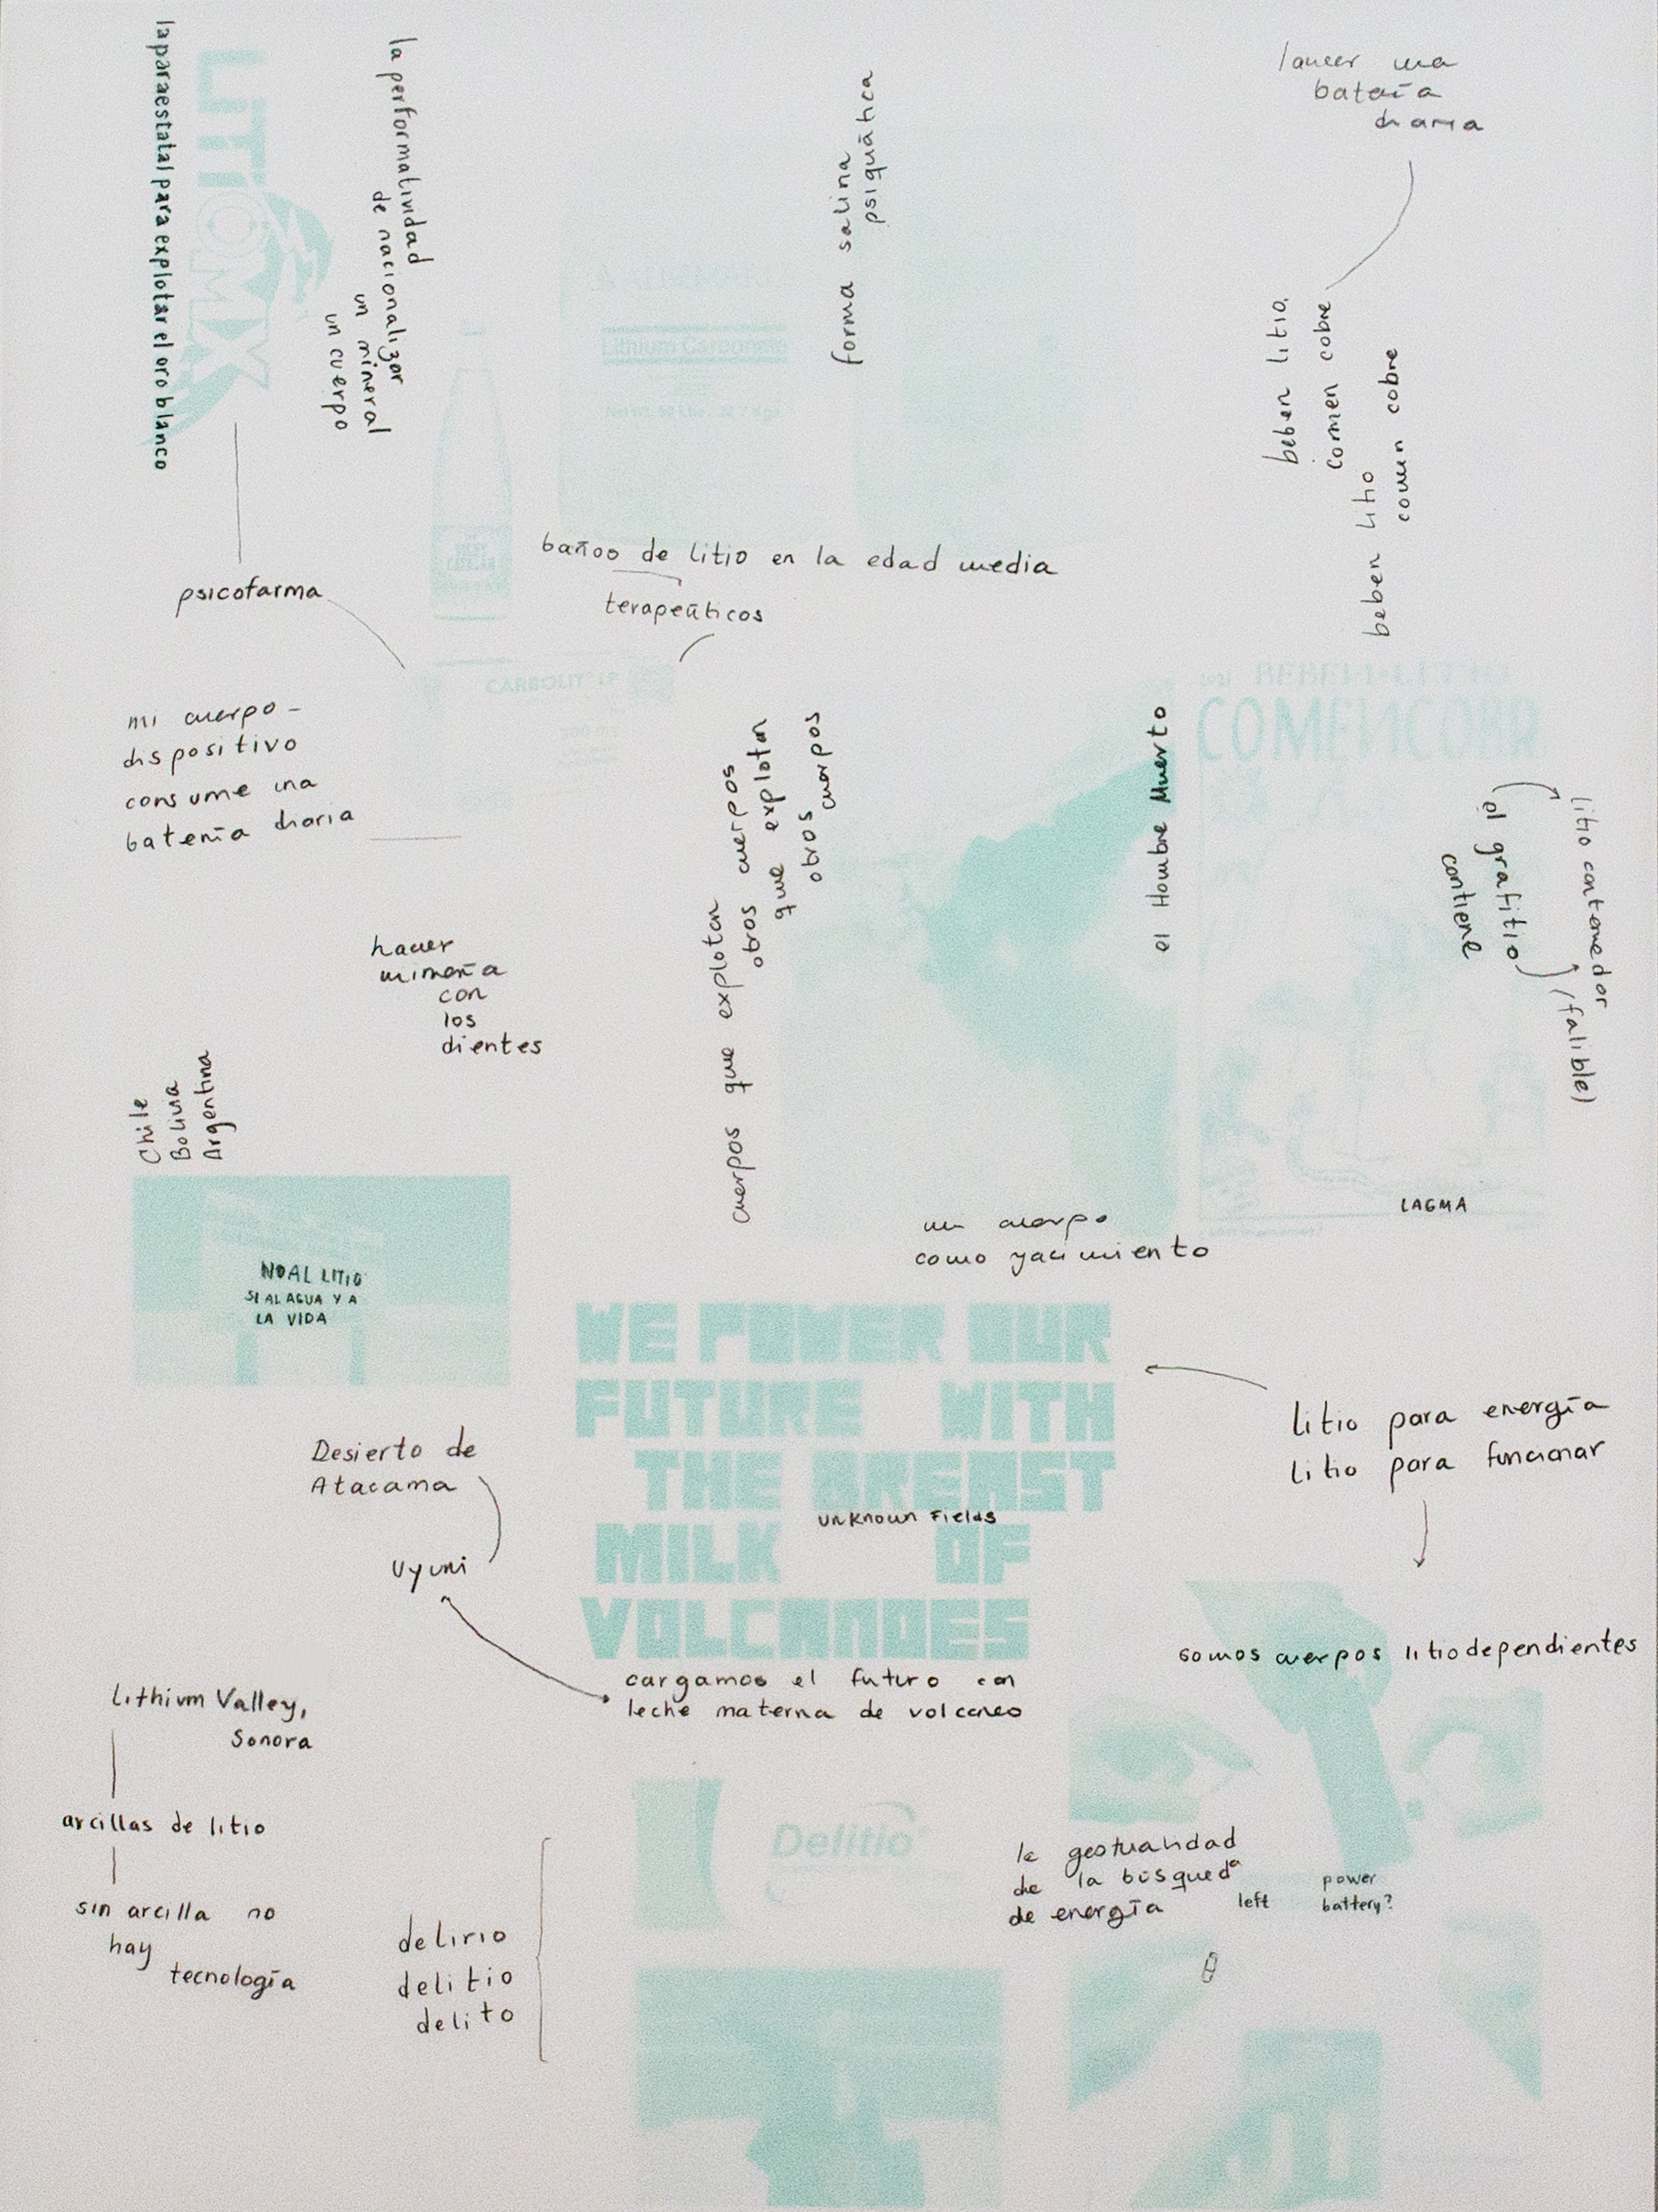 la paraestatal para explotar el oro blanco
LITIOMX
la performatividad
de nacionalizar
un mineral
un cuerpo
forma salina
psiquiátrica
lamer una
batería
diaria
beben litio,
comen cobre
beben litio
comen cobre
Lithium Carbonate
baños de litio en la edad media
terapeúticos
psicofarma
CARBOLIT LP
300 mg
mi cuerpo-
dispositivo
consume una
batería diaria
cuerpos que explotan
otros cuerpos
que explotan
otros cuerpos
el Hombre Muerto
2021 BEBEN LITIO
COMENCOBR
el grafitio
contiene
litio contenedor
(falible)
hacer
minería
con
los
dientes
Chile
Bolivia
Argentina
LAGMA
un cuerpo
como yacimiento
NO AL LITIO
SI AL AGUA Y A
LA VIDA
WE POWER OUR
FUTURE WITH
THE BREAST
MILK OF
VOLCANOES
unknown Fields
litio para energía
litio para funcionar
Desierto de
Atacama
Uyuni
somos cuerpos litiodependientes
cargamos el futuro con
leche materna de volcanes
Lithium Valley,
Sonora
arcillas de litio
sin arcilla no
hay
tecnología
Delitio
la gestualidad
de la búsqueda
de energía
left
power
battery?
delirio
delitio
delito